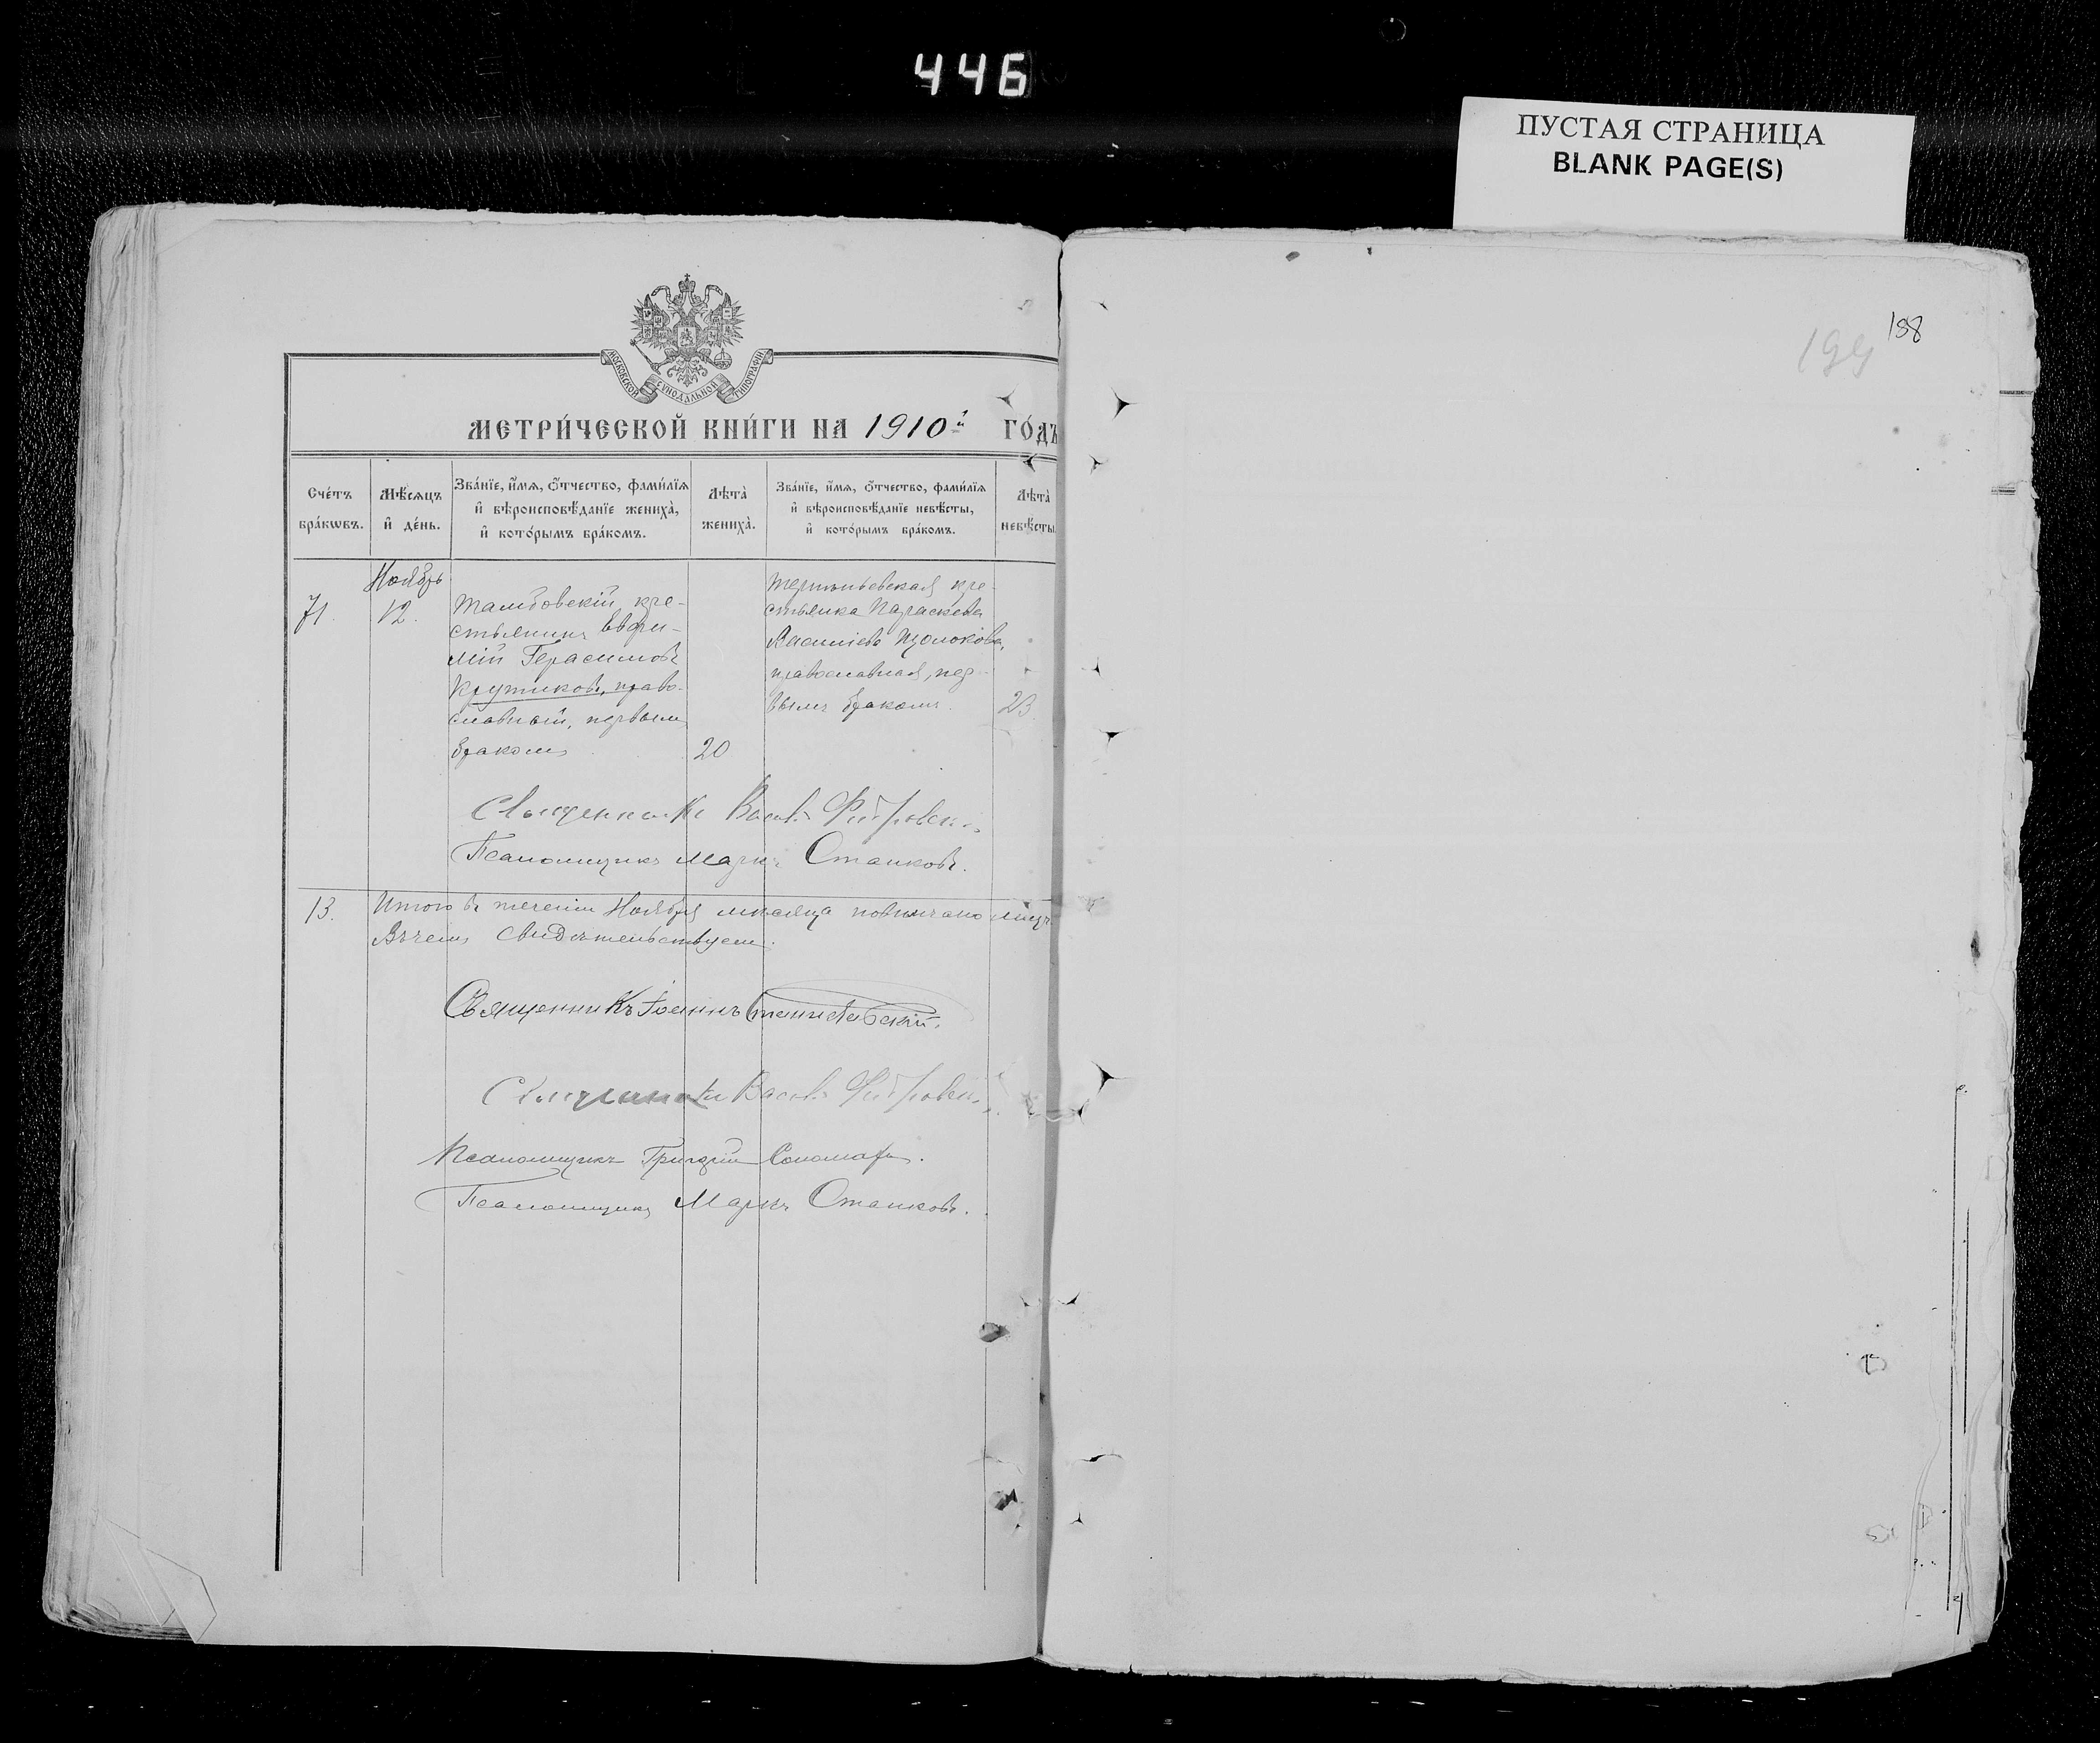 446
ПУСТАЯ СТРАНИЦА
BLANK PAGE(S)
198
199
МОСКОВСКОЙ СѴНОДАЛЬНОЙ ТИПОГРАФІИ
МЕТРИ́ЧЕСКОЙ КНИ́ГИ НА 1910й ГО́ДЪ
Сче́тъ бра́кѡвъ.
Мѣ́сяцъ и҆ де́нь.
Зва́нїе, и҆́мѧ, ѻ҆́тчество, фами́лїѧ и҆ вѣроисповѣ́данїе жениха̀, и҆ кото́рымъ бра́комъ.
Лѣта̀ жениха̀.
Зва́нїе, и҆́мѧ, ѻ҆́тчество, фами́лїѧ и҆ вѣроисповѣ́данїе невѣ́сты, и҆ кото́рымъ бра́комъ.
Лѣта̀ невѣ́сты.
Ноябрь
71.
12.
Тамбовскій кре-
стьянинъ Евфи-
мій Герасимовъ
Крутиковъ, право-
славный, первымъ
бракомъ
20
кре-
стьянка Параскева
православная, пер-
вымъ бракомъ.
23
Священникъ
Псаломщикъ Маркъ Сташковъ.
13.
Итого въ теченіи Ноября мѣсяца повѣнчано
Въ чемъ свидѣтельствуемъ.
Священникъ Іоаннъ Станиславскій.
Священникъ
Псаломщикъ Григорій Соломаха.
Псаломщикъ Маркъ Сташковъ.